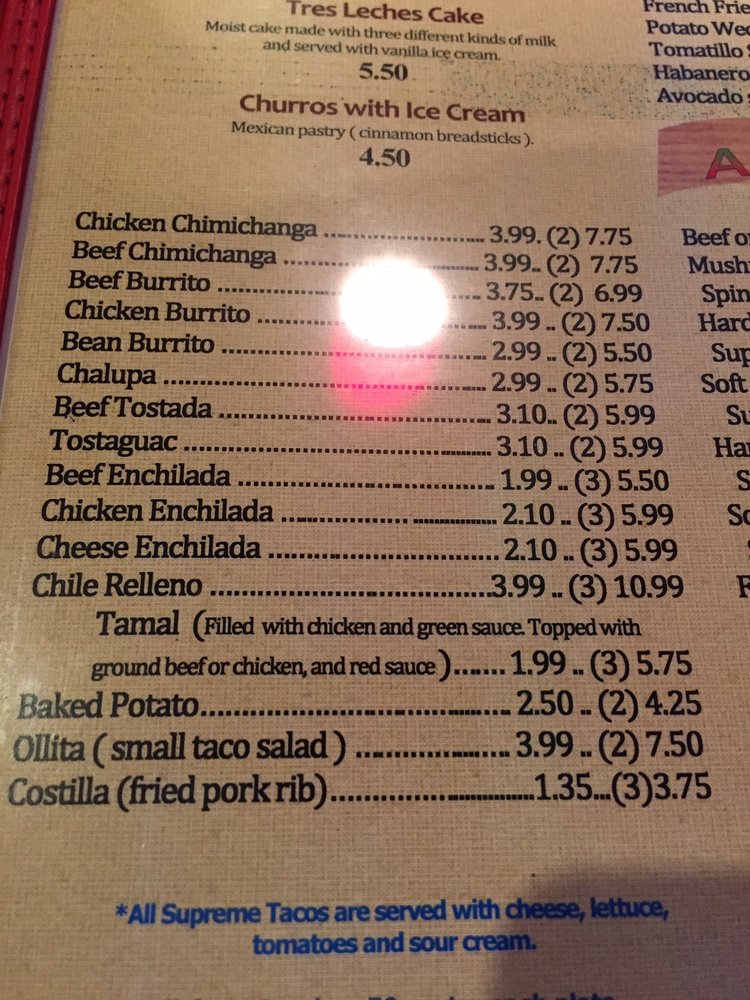 Tres Leches Cake
Moist cake made with three different kinds of milk
and served with vanilla ice cream.
5.50
Churros with Ice Cream
Mexican pastry ( cinnamon breadsticks ).
4.50
Chicken Chimichanga ................................ 3.99. (2) 7.75
Beef Chimichanga ........................................ 3.99.. (2) 7.75
Beef Burrito ..................................................... 3.75.. (2) 6.99
Chicken Burrito .............................................. 3.99 .. (2) 7.50
Bean Burrito ..................................................... 2.99 .. (2) 5.50
Chalupa ............................................................. 2.99 .. (2) 5.75
Beef Tostada ..................................................... 3.10.. (2) 5.99
Tostaguac .......................................................... 3.10 .. (2) 5.99
Beef Enchilada ................................................ 1.99 .. (3) 5.50
Chicken Enchilada ....................... ................ 2.10 .. (3) 5.99
Cheese Enchilada ........................................... 2.10 .. (3) 5.99
Chile Relleno ...................................................3.99 .. (3) 10.99
Tamal (Filled with chicken and green sauce. Topped with
ground beef or chicken, and red sauce )....... 1.99 .. (3) 5.75
Baked Potato.................................................... 2.50 .. (2) 4.25
Ollita ( small taco salad ) ............................ 3.99 .. (2) 7.50
Costilla (fried pork rib)....................................1.35...(3)3.75
*All Supreme Tacos are served with cheese, lettuce,
tomatoes and sour cream.
French
Potato
Tomatillo
Habanero
Avocado
Beef
Hard
Soft